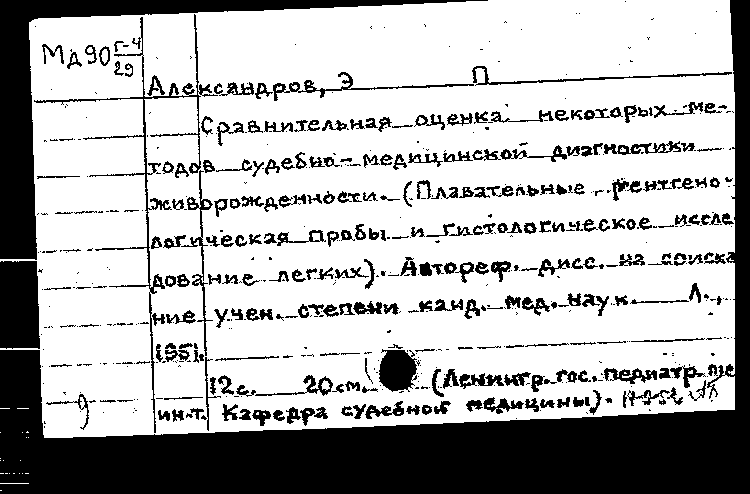 Мд90 Г-4/29
Александров, Э П
Сравнительная оценка некоторых ме-
тодов судебно-медицинской диагностики
живорожденности. (Плавательные, рентгено-
логическая пробы и гистологическое иссле
дование легких). Автореф. дисс. на соиска
ние учен. степени канд. мед. наук. Л.,
1951.
12с. 20см. (Ленингр. гос. педиатр. ме
ин-т. Кафедра судебной медицины).